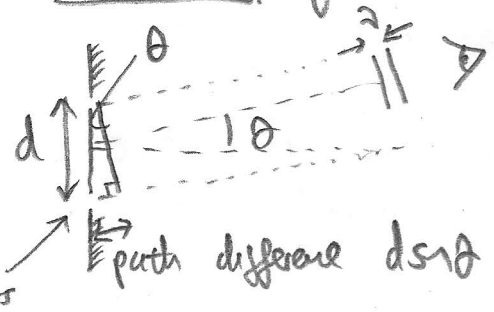 θ
λ
d
θ
path difference dsinθ